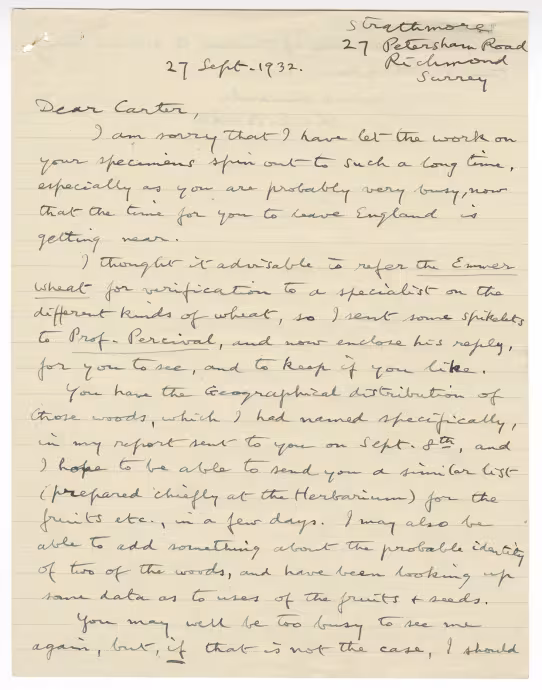 Strathmore
27 Petersham Road
Richmond
Surrey
27 Sept. 1932.
Dear Carter,
I am sorry that I have let the work on
your specimens spin out to such a long time,
especially as you are probably very busy, now
that the time for you to leave England is
getting near.
I thought it advisable to refer the Emmer
wheat for verification to a specialist on the
different kinds of wheat, so I sent some spikelets
to Prof. Percival, and now enclose his reply,
for you to see, and to keep if you like.
You have the Geographical distribution of
those woods, which I had named specifically,
in my report sent to you on Sept. 8th, and
I hope to be able to send you a similar list
(prepared chiefly at the Herbarium) for the
fruits etc., in a few days. I may also be
able to add something about the probable identity
of two of the woods, and have been looking up
some data as to uses of the fruits + seeds.
You may well be too busy to see me
again, but, if that is not the case, I should